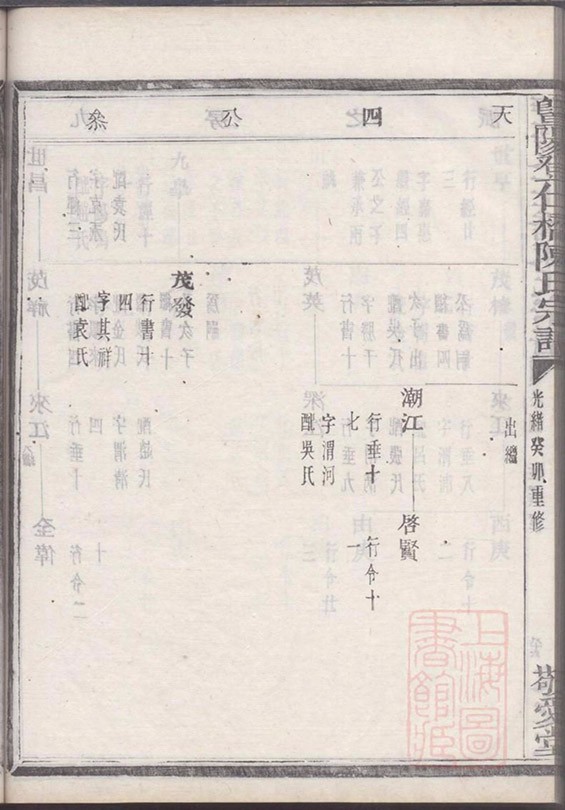 暨陽登仕橋陳氏宗譜
光緒癸卯重修
敬愛堂
天四公叅
出繼
潮江 啓賢
行垂十 行令十
七 一
字渭河
配吳氏
茂發
行書廿
四
字其祥
配袁氏
上海圖
書館藏